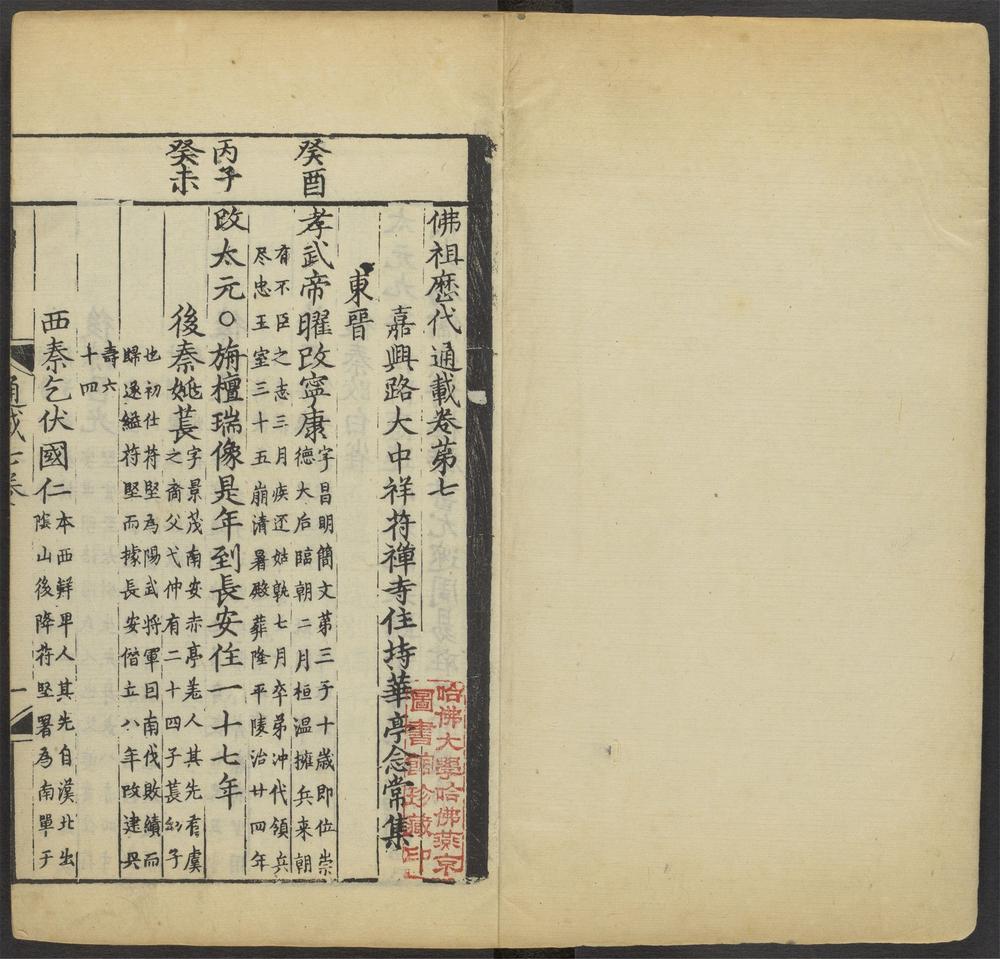 佛祖歷代通載卷第七
嘉興路大中祥符禪寺住持華亭念常集
東晉
癸酉
孝武帝曜改寧康字昌明簡文第三子十歲即位崇
德太后臨朝二月桓溫擁兵来朝
有不臣之志三月疾还姑孰七月卒弟冲代領兵
尽忠王室三十五崩清暑殿葬隆平陵治廿四年
丙子
改太元〇旃檀瑞像是年到長安住一十七年
癸未
後秦姚萇字景茂南安赤亭羗人其先有虞
之裔父弋仲有二十四子萇
子
也初仕苻堅為陽武将軍曰南伐敗績而
歸遂縊苻堅而據長安僭立八年改建
壽六
十四
西秦乞伏國仁本西鮮卑人其先自漠北出
隂山後降苻堅署為南單于
通載七卷
一
哈佛大學哈佛燕京
圖書館珍藏印